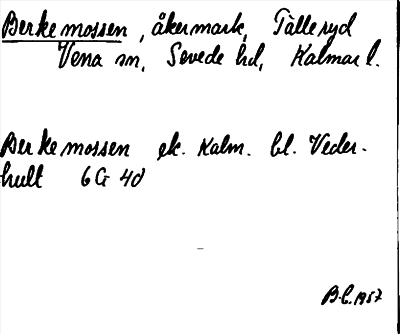 Berkemossen, åkermark, Tälleryd
Vena sn, Sevede hd, Kalmar l.
Berkemossen ek. Kalm. bl. Veder-
hult 6G 4d
B.L. 1957